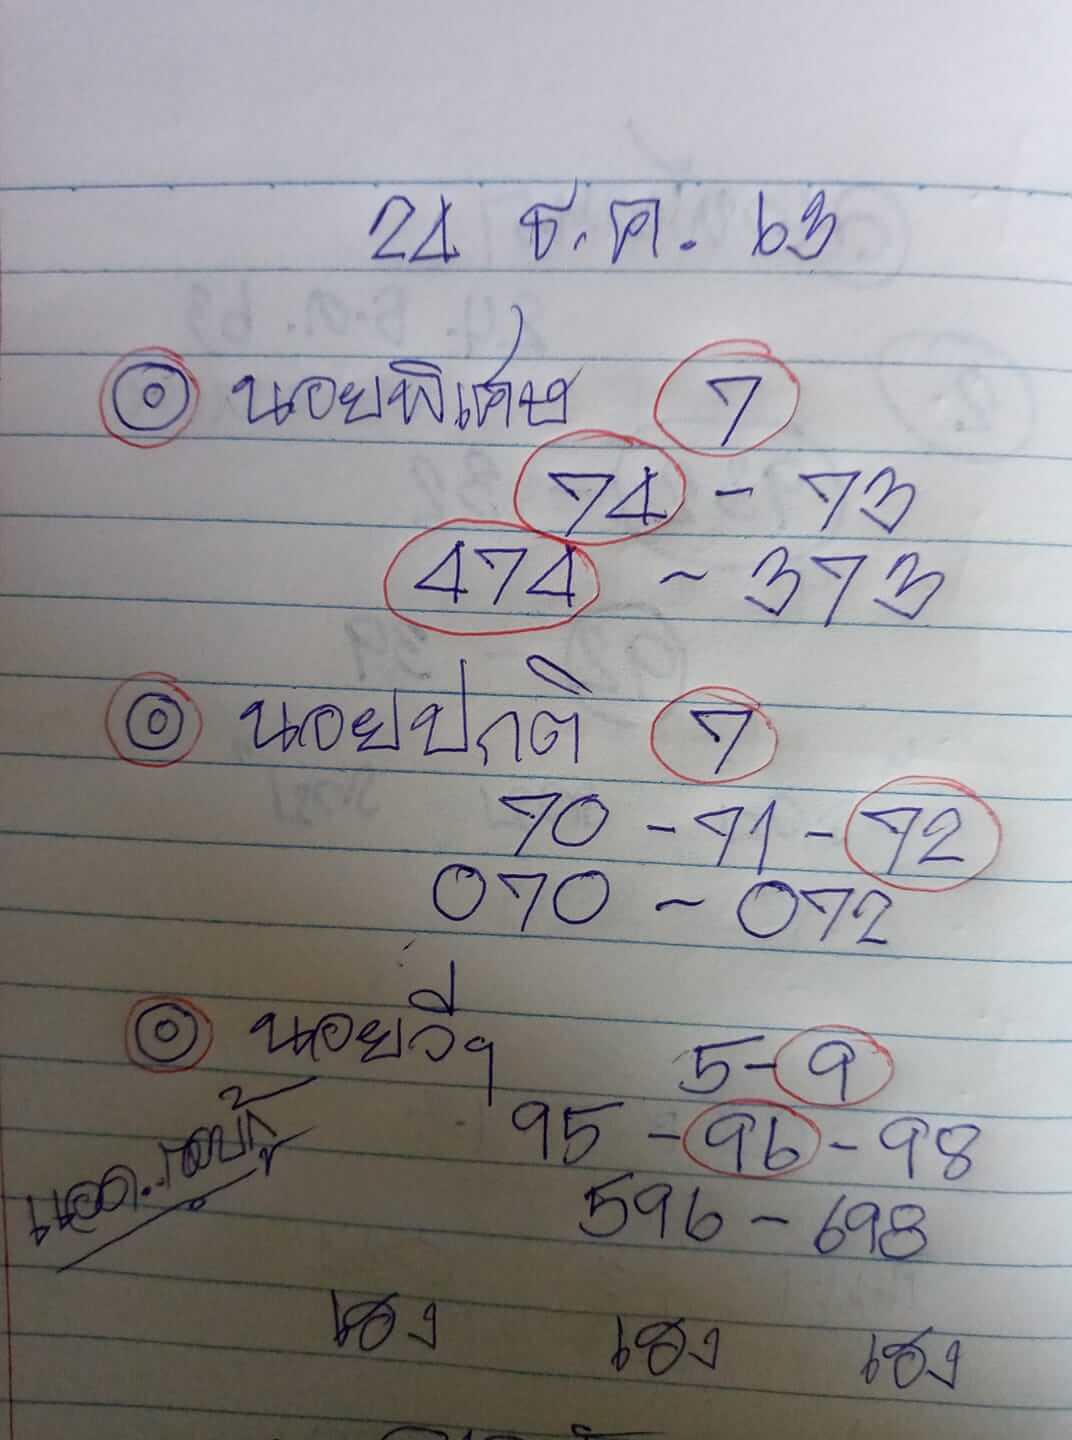 24 ธ.ค. 63
นอยพิเศษ 7
74 - 73
474 - 373
นอยปกติ 7
70 - 71 - 72
070 - 072
นอยวีๆ 5 - 9
95 - 96 - 98
596 - 698
เฮง เฮง เฮง